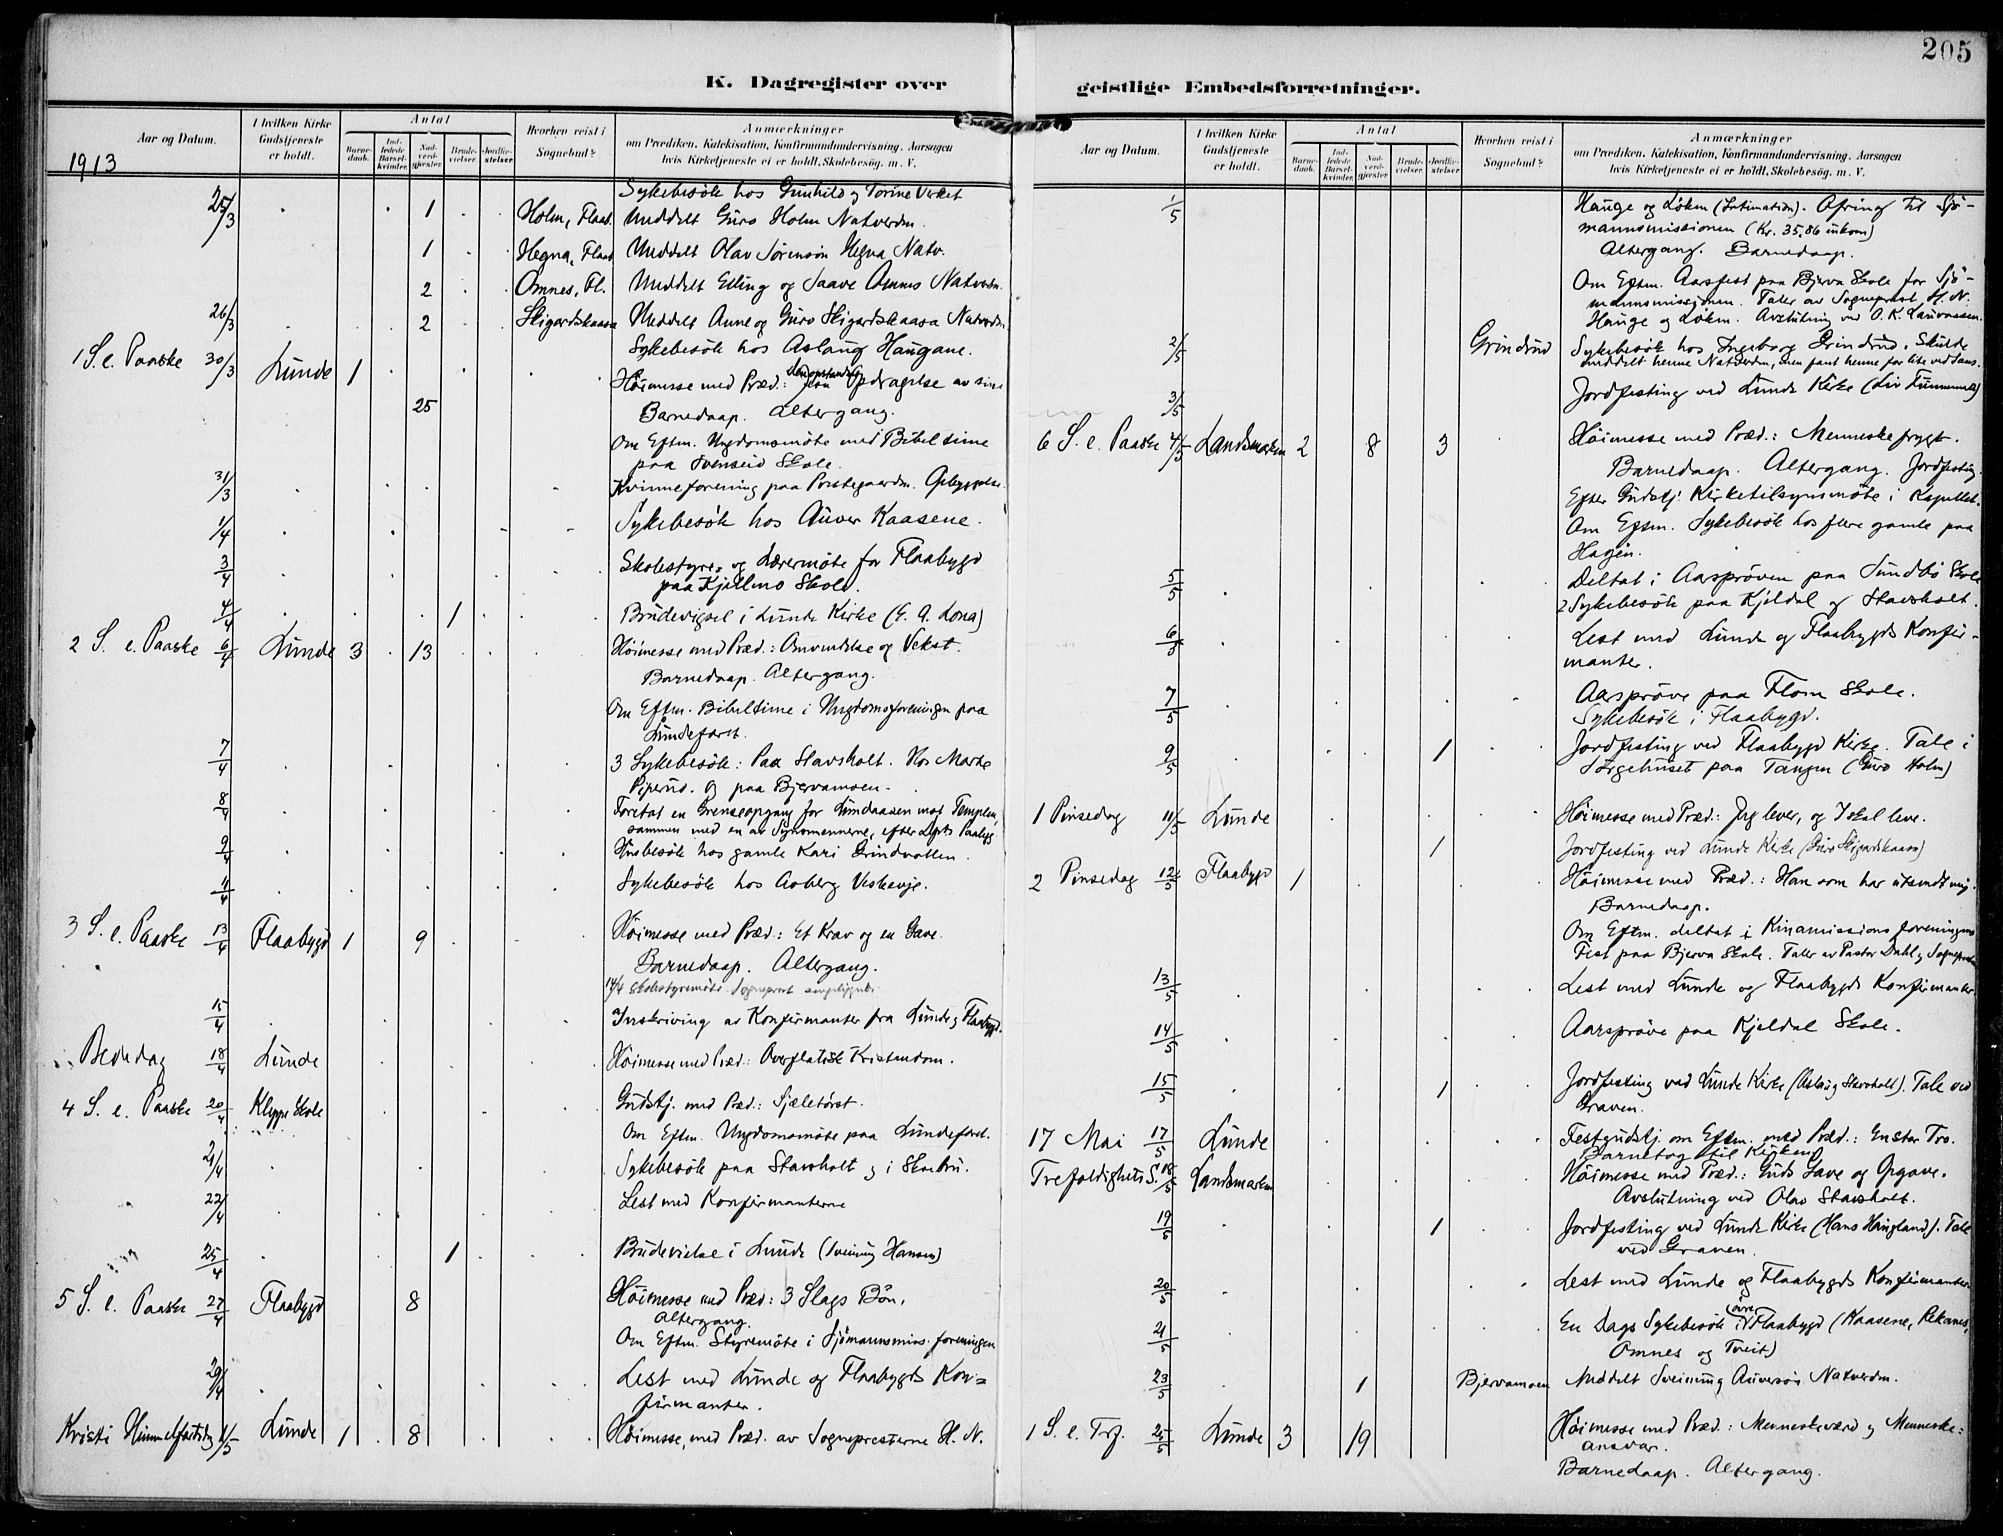 205
K. Dagregister over
Aar og Datum.
I hvilken Kirke Gudstjeneste er holdt.
Antal
Barnedaab.
Indledede Barselkvinder.
Nadverdgjester
Brudevielser.
Jordfæstelser
Hvorhen reist i Sognebud?
Anmærkninger
om Prædiken, Katekisation, Konfirmandundervisning. Aarsagen
hvis Kirketjeneste ei er holdt. Skolebesøg. m. V.
1913
25/3 Sykebesök hos Gunhild og Torine
1 Holm, Flaab. Meddelt Guro Holm Natverdn.
1 Hegna, Flaab Meddelt Olav Sörensön Hegna Natv.
2 Omnes, Fl. Meddelt Elling og Saave Omnes Natverdn.
26/3 2 Skigardskaasa Meddelt Anne og Guro Skigardskaasa Natverdn
Sykebesök hos Aslaug Haugane.
1 S. e. Paaske 30/3 Lunde 1 Höimesse med Præd.: Opdragelse av sine
25 Barnedaap. Altergang.
Om Eftm. Ungdomsmöte med Bibeltime
paa Svenseid Skole.
31/3 Kvinneforening paa Prestegaarden.
1/4 Sykebesök hos Auver Kaasene.
3/4 Skolestyre- og Lærermöte for Flaabygd
paa Kjellmo Skole.
4/4 1 Brudevigsel i Lunde Kirke (E. A. Lona)
2 S. e. Paaske 6/4 Lunde 3 13 Höimesse med Præd.: Omvendelse og Vekst.
Barnedaap. Altergang.
Om Eftm. Bibeltime i Ungdomsforeningen paa
Lundefaret.
7/4 3 Sykebesök: Paa Stavsholt. Hos
Piperud. Og paa Bjervamoen.
8/4 Foretat en Grenseopgang for Lundaasen mot Templen,
sammen med en av Synsmennerne, efter
9/4 Husbesök hos gamle Kari Grindvollen.
11/4 Sykebesök hos Aaberg
3 S. e. Paaske 13/4 Flaabygd 1 9 Höimesse med Præd.: Et Krav og en Gave.
Barnedaap. Altergang.
14/4 Skolestyremöte. Sogneprest
15/4 Inskriving av Konfirmanter fra Lunde og Flaabygd.
Bededag 18/4 Lunde Höimesse med Præd.: Overflatisk Kristendom.
4 S. e. Paaske 20/4 Klyppe Skole Gudstj. med Præd.: Sjæletörst.
Om Eftm. Ungdomsmöte paa Lundefaret.
21/4 Sykebesök paa Stavsholt og i
22/4 Lest med Konfirmanterne
25/4 1 Brudevielse i Lunde (Sveinung Hansen)
5 S. e. Paaske 27/4 Flaabygd 8 Höimesse med Præd.: 3 Slags Bön.
Altergang.
Om Eftm. Styremöte i Sjömannsmis. foreningen
29/4 Lest med Lunde og Flaabygds Kon-
firmanter.
Kristi Himmelfartsdag 1/5 Lunde 1 8 Höimesse, med Præd. av Sognepresterne H. N.
geistlige Embedsforretninger.
Aar og Datum.
I hvilken Kirke Gudstjeneste er holdt.
Antal
Barnedaab.
Indledede Barselkvinder.
Nadverdgjester
Brudevielser.
Jordfæstelser
Hvorhen reist i Sognebud?
Anmærkninger
om Prædiken, Katekisation, Konfirmandundervisning. Aarsagen
hvis Kirketjeneste ei er holdt. Skolebesøg. m. V.
1/5 Hauge og Löken (Intimation). Ofring til Sjö-
mannsmissionen (Kr. 35.86 inkom)
Altergang. Barnedaap.
Om Eftm. Aarsfest paa Bjerva Skole for Sjö-
mannsmissionen. Taler av Sogneprest H. N.
Hauge og Löken. Avslutning ved O. K. Lauvaasen.
2/5 Grindrud Sykebesök hos Ingeborg Grindrud. Skulde
meddelt henne Natverdn, men fant henne for lite ved Sans.
3/5 Jordfesting ved Lunde Kirke
6 S. e. Paaske 4/5 Landsmarken 2 8 3 Höimesse med Præd.: Menneskefrygt.
Barnedaap. Altergang. Jordfesting
Efter Gudstj. Kirketilsynsmöte i Kapellet.
Om Eftm. Sykebesök hos flere gamle paa
Hagen.
5/5 Deltat i Aarspröven paa Sundbö Skole
2 Sykebesök paa Kjeldal og Stavsholt.
6/5 Lest med Lunde og Flaabygds Konfir-
manter.
7/5 Aarspröve paa Flom Skole.
Sykebesök i Flaabygd.
9/5 1 Jordfesting ved Flaabygd Kirke. Tale i
Sörgehuset paa Tangen (Guro Holm)
1 Pinsedag 11/5 Lunde Höimesse med Præd.: Jeg lever, og I skal leve.
1 Jordfesting ved Lunde Kirke (Guro Skigardskaasa)
2 Pinsedag 12/5 Flaabygd 1 Höimesse med Præd.: Han som har utsendt mig.
Barnedaap.
Om Eftm. deltat i Kinamissionsforeningens
Fest paa Bjerva Skole. Taler av Pastor Dahl og Sognepresten
13/5 Lest med Lunde og Flaabygds Konfirmanter
14/5 Aarspröve paa Kjeldal Skole.
15/5 1 Jordfesting ved Lunde Kirke (Aslaug Stavsholt). Tale ved
Graven.
17 Mai 17/5 Lunde Festgudstj. om Eftm. med Præd.: Enster Tro.
Barnetog til Kirken
Trefoldighets S. 18/5 Landsmarken Höimesse med Præd.: Guds Gave og Opgave.
Avslutning ved Olav Stavsholt.
19/5 1 Jordfesting ved Lunde Kirke (Hans Haugland). Tale
ved Graven.
20/5 Lest med Lunde og Flaabygds Konfirmanter
21/5 En Dags Sykebesök i övre Flaabygd (Kaasene, Rekanes,
Omnes og Tveit)
23/5 1 Bjervamoen Meddelt Sveinung Auversön Natverdn.
1 S. e. Tref. 25/5 Lunde 3 19 Höimesse med Præd.: Menneskeværd og Menneske-
ansvar.
Barnedaap. Altergang.